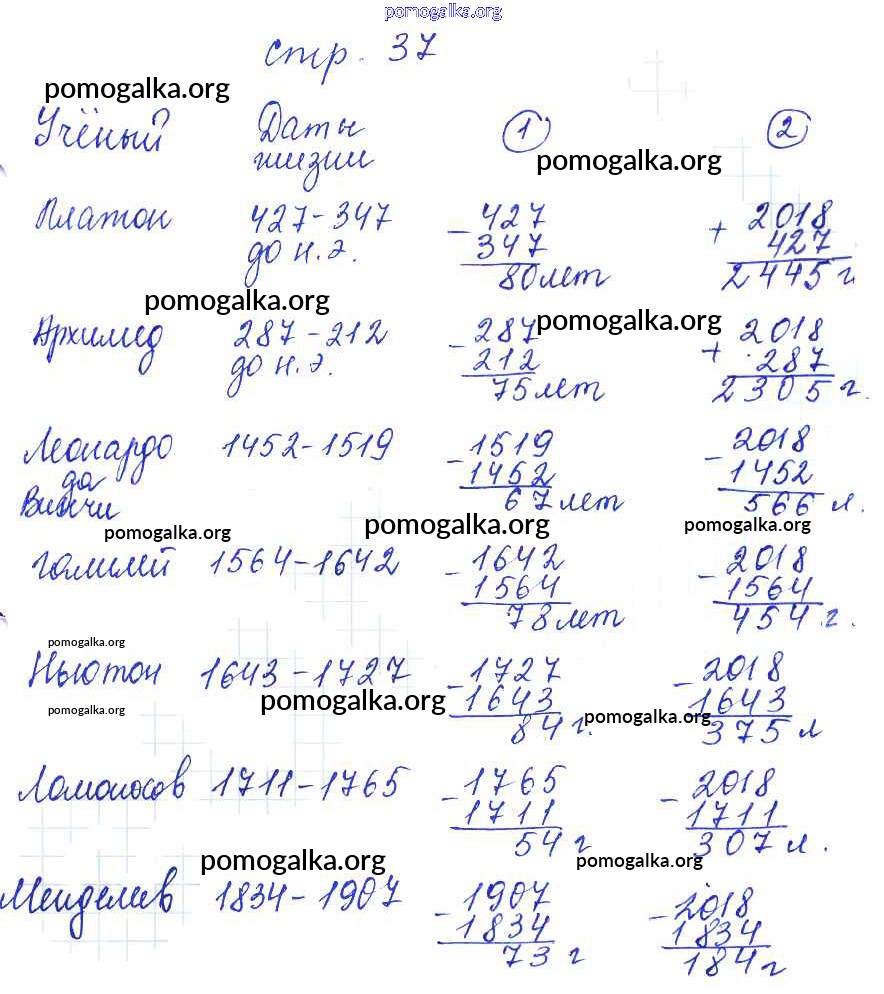 pomogalka.org
стр. 37
pomogalka.org
Учёный Даты жизни 1 2
pomogalka.org
Платон 427-347 до н.э. - 427 347 80 лет + 2018 427 2445 г.
pomogalka.org
pomogalka.org
Архимед 287-212 до н.э. - 287 212 75 лет + 2018 287 2305 г.
Леонардо да Винчи 1452-1519 - 1519 1452 67 лет - 2018 1452 566 л.
pomogalka.org pomogalka.org pomogalka.org
Галилей 1564-1642 - 1642 1564 78 лет - 2018 1564 454 г.
pomogalka.org
Ньютон 1643-1727 - 1727 1643 84 г. - 2018 1643 375 л
pomogalka.org pomogalka.org pomogalka.org
Ломоносов 1711-1765 - 1765 1711 54 г - 2018 1711 307 л.
pomogalka.org pomogalka.org
Менделев 1834-1907 - 1907 1834 73 г - 2018 1834 184 г